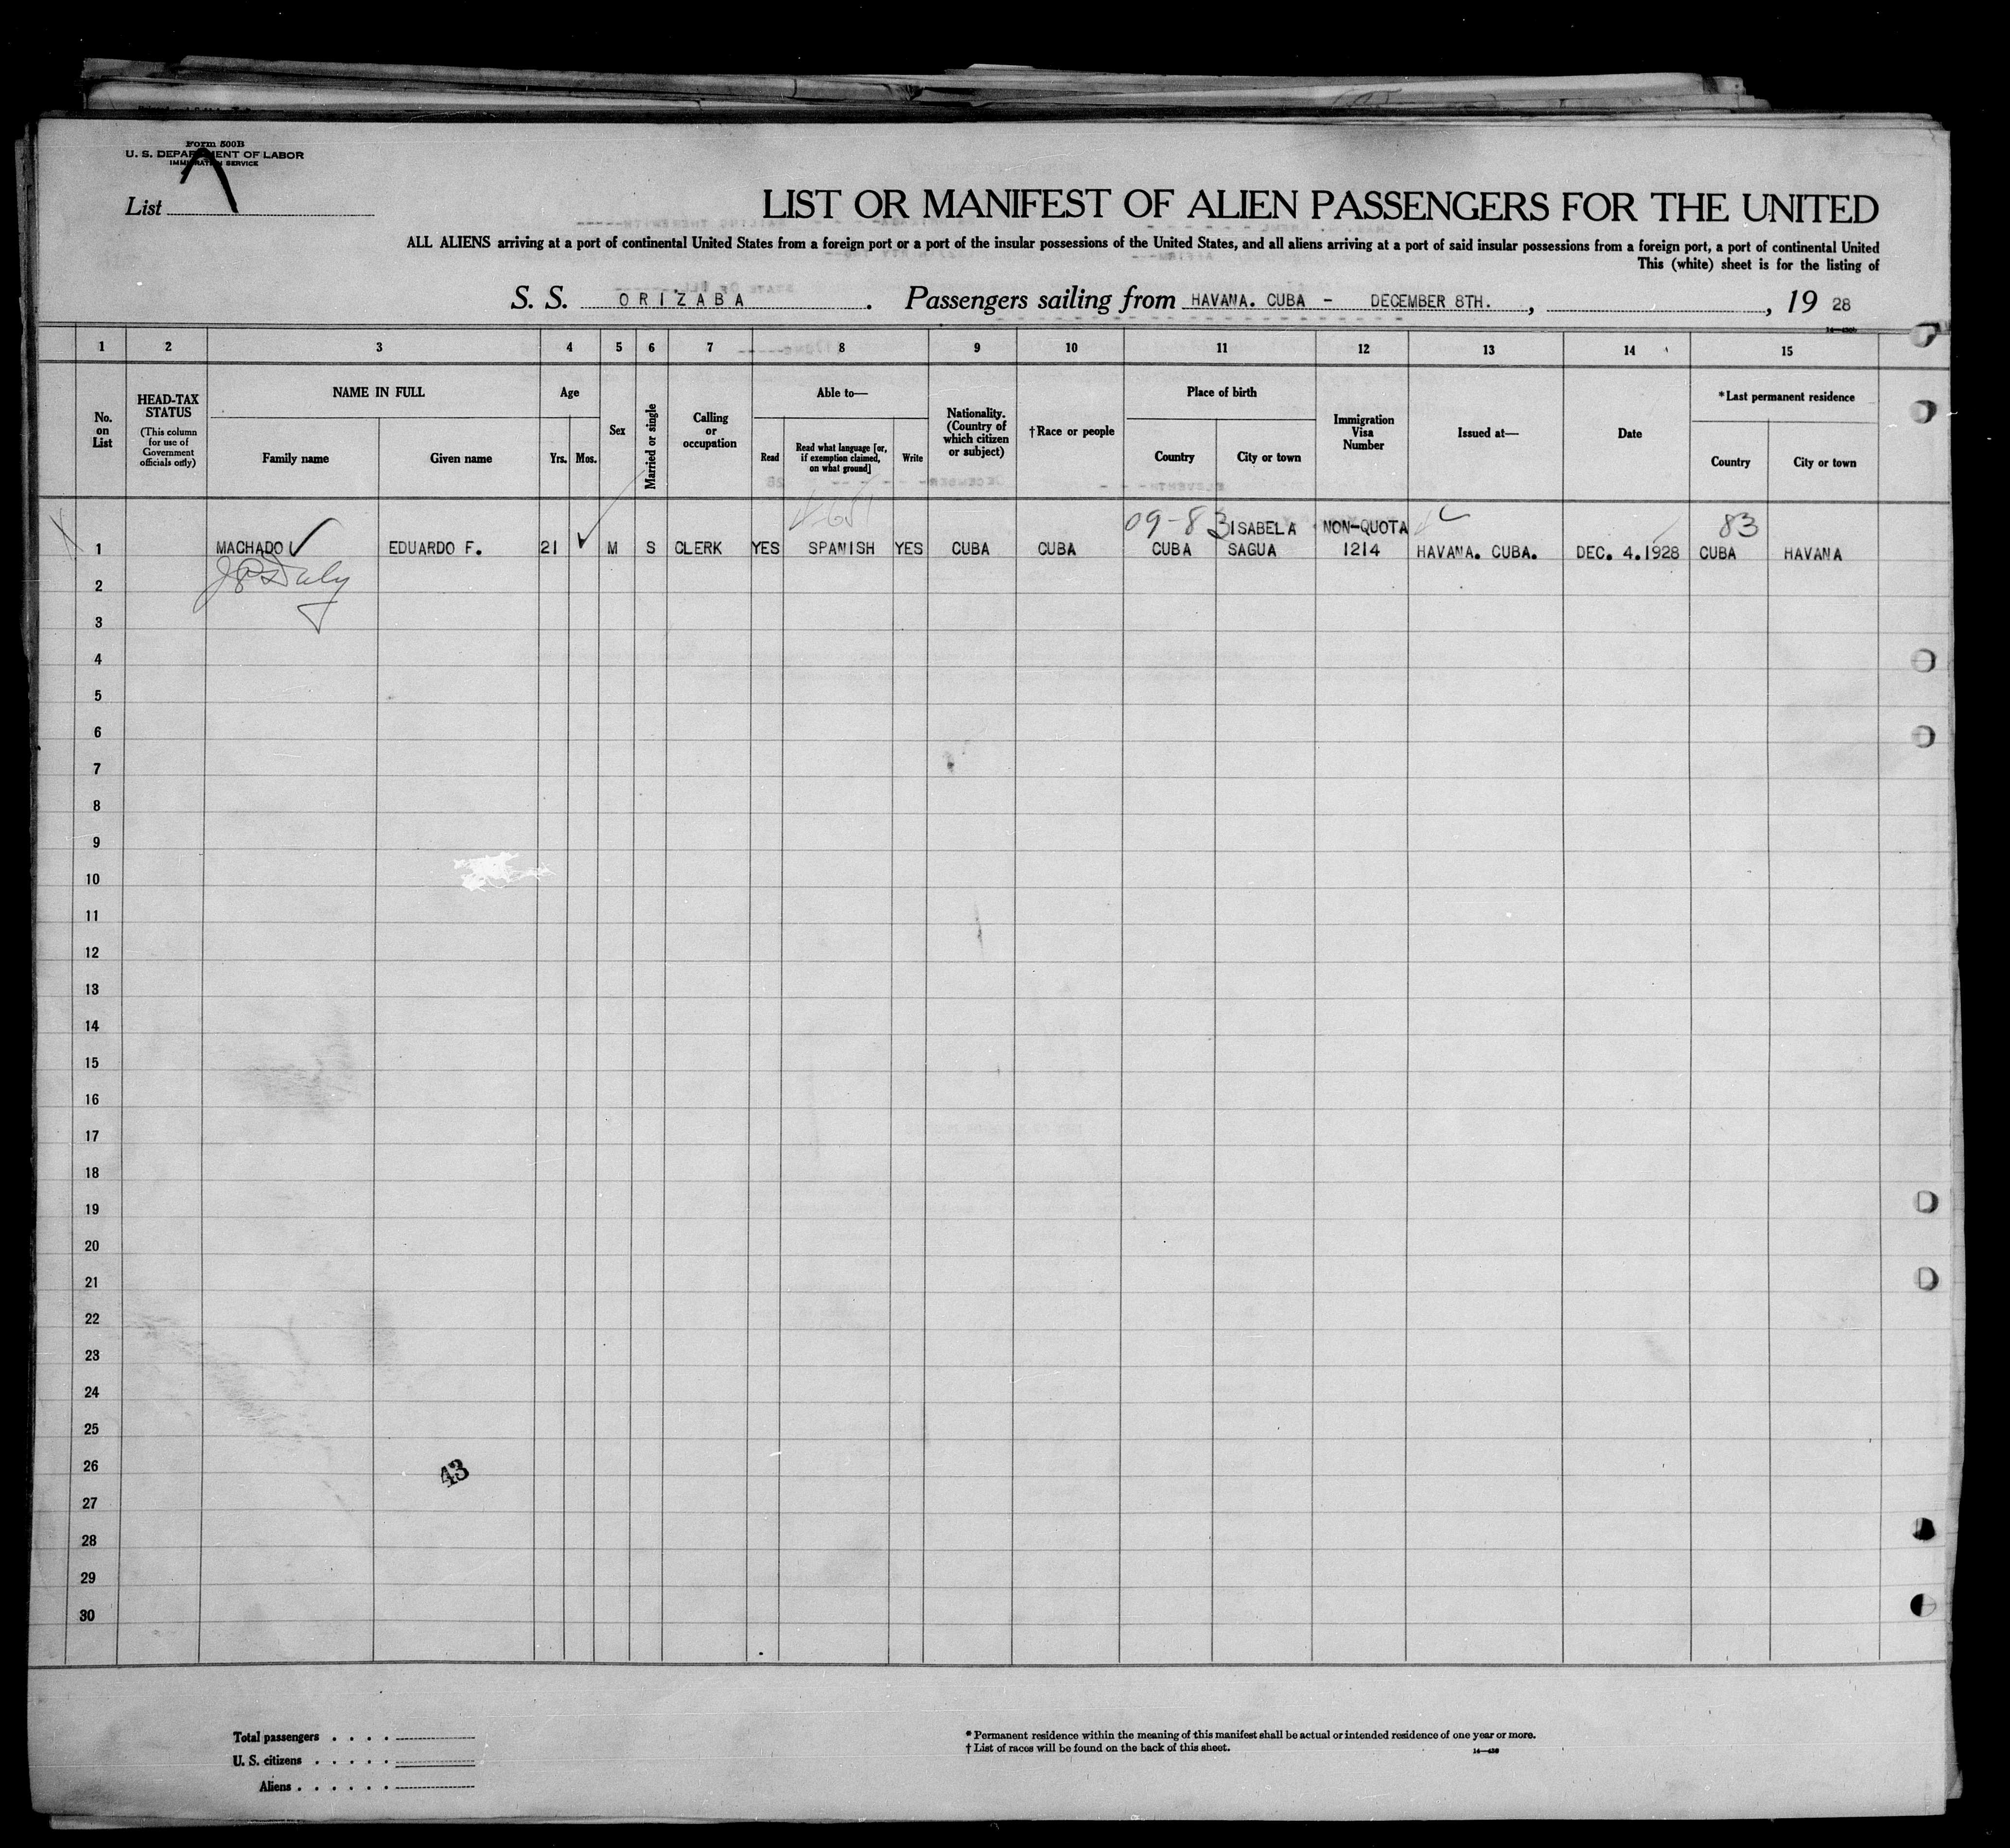 Form 500B
U. S. DEPARTMENT OF LABOR
IMMIGRATION SERVICE
List
LIST OR MANIFEST OF ALIEN PASSENGERS FOR THE UNITED
ALL ALIENS arriving at a port of continental United States from a foreign port or a port of the insular possessions of the United States, and all aliens arriving at a port of said insular possessions from a foreign port, a port of continental United
This (white) sheet is for the listing of
S. S. ORIZABA. Passengers sailing from HAVANA. CUBA - DECEMBER 8TH., , 19 28
1 2 3 4 5 6 7 8 9 10 11 12 13 14 15
No. on List
HEAD-TAX STATUS
(This column for use of Government officials only)
NAME IN FULL
Family name
Given name
Age
Yrs.
Mos.
Sex
Married or single
Calling or occupation
Able to—
Read
Read what language [or, if exemption claimed, on what ground]
Write
Nationality. (Country of which citizen or subject)
†Race or people
Place of birth
Country
City or town
Immigration Visa Number
Issued at—
Date
*Last permanent residence
Country
City or town
09-83 ISABELA NON-QUOTA 83
1 MACHADO EDUARDO F. 21 M S CLERK YES SPANISH YES CUBA CUBA CUBA SAGUA 1214 HAVANA. CUBA. DEC. 4.1928 CUBA HAVANA
2
3
4
5
6
7
8
9
10
11
12
13
14
15
16
17
18
19
20
21
22
23
24
25
26
43
27
28
29
30
Total passengers . . . .
U. S. citizens . . . . .
Aliens . . . . . .
* Permanent residence within the meaning of this manifest shall be actual or intended residence of one year or more.
† List of races will be found on the back of this sheet.